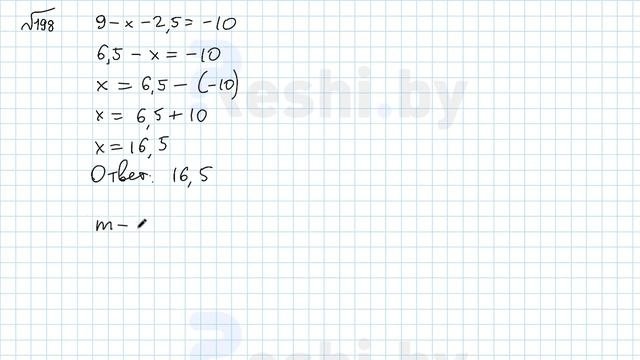 √198 9 - x - 2,5 = -10
6,5 - x = -10
x = 6,5 - (-10)
x = 6,5 + 10
x = 16,5
Ответ: 16,5
m -
Reshi.by
Reshi.by